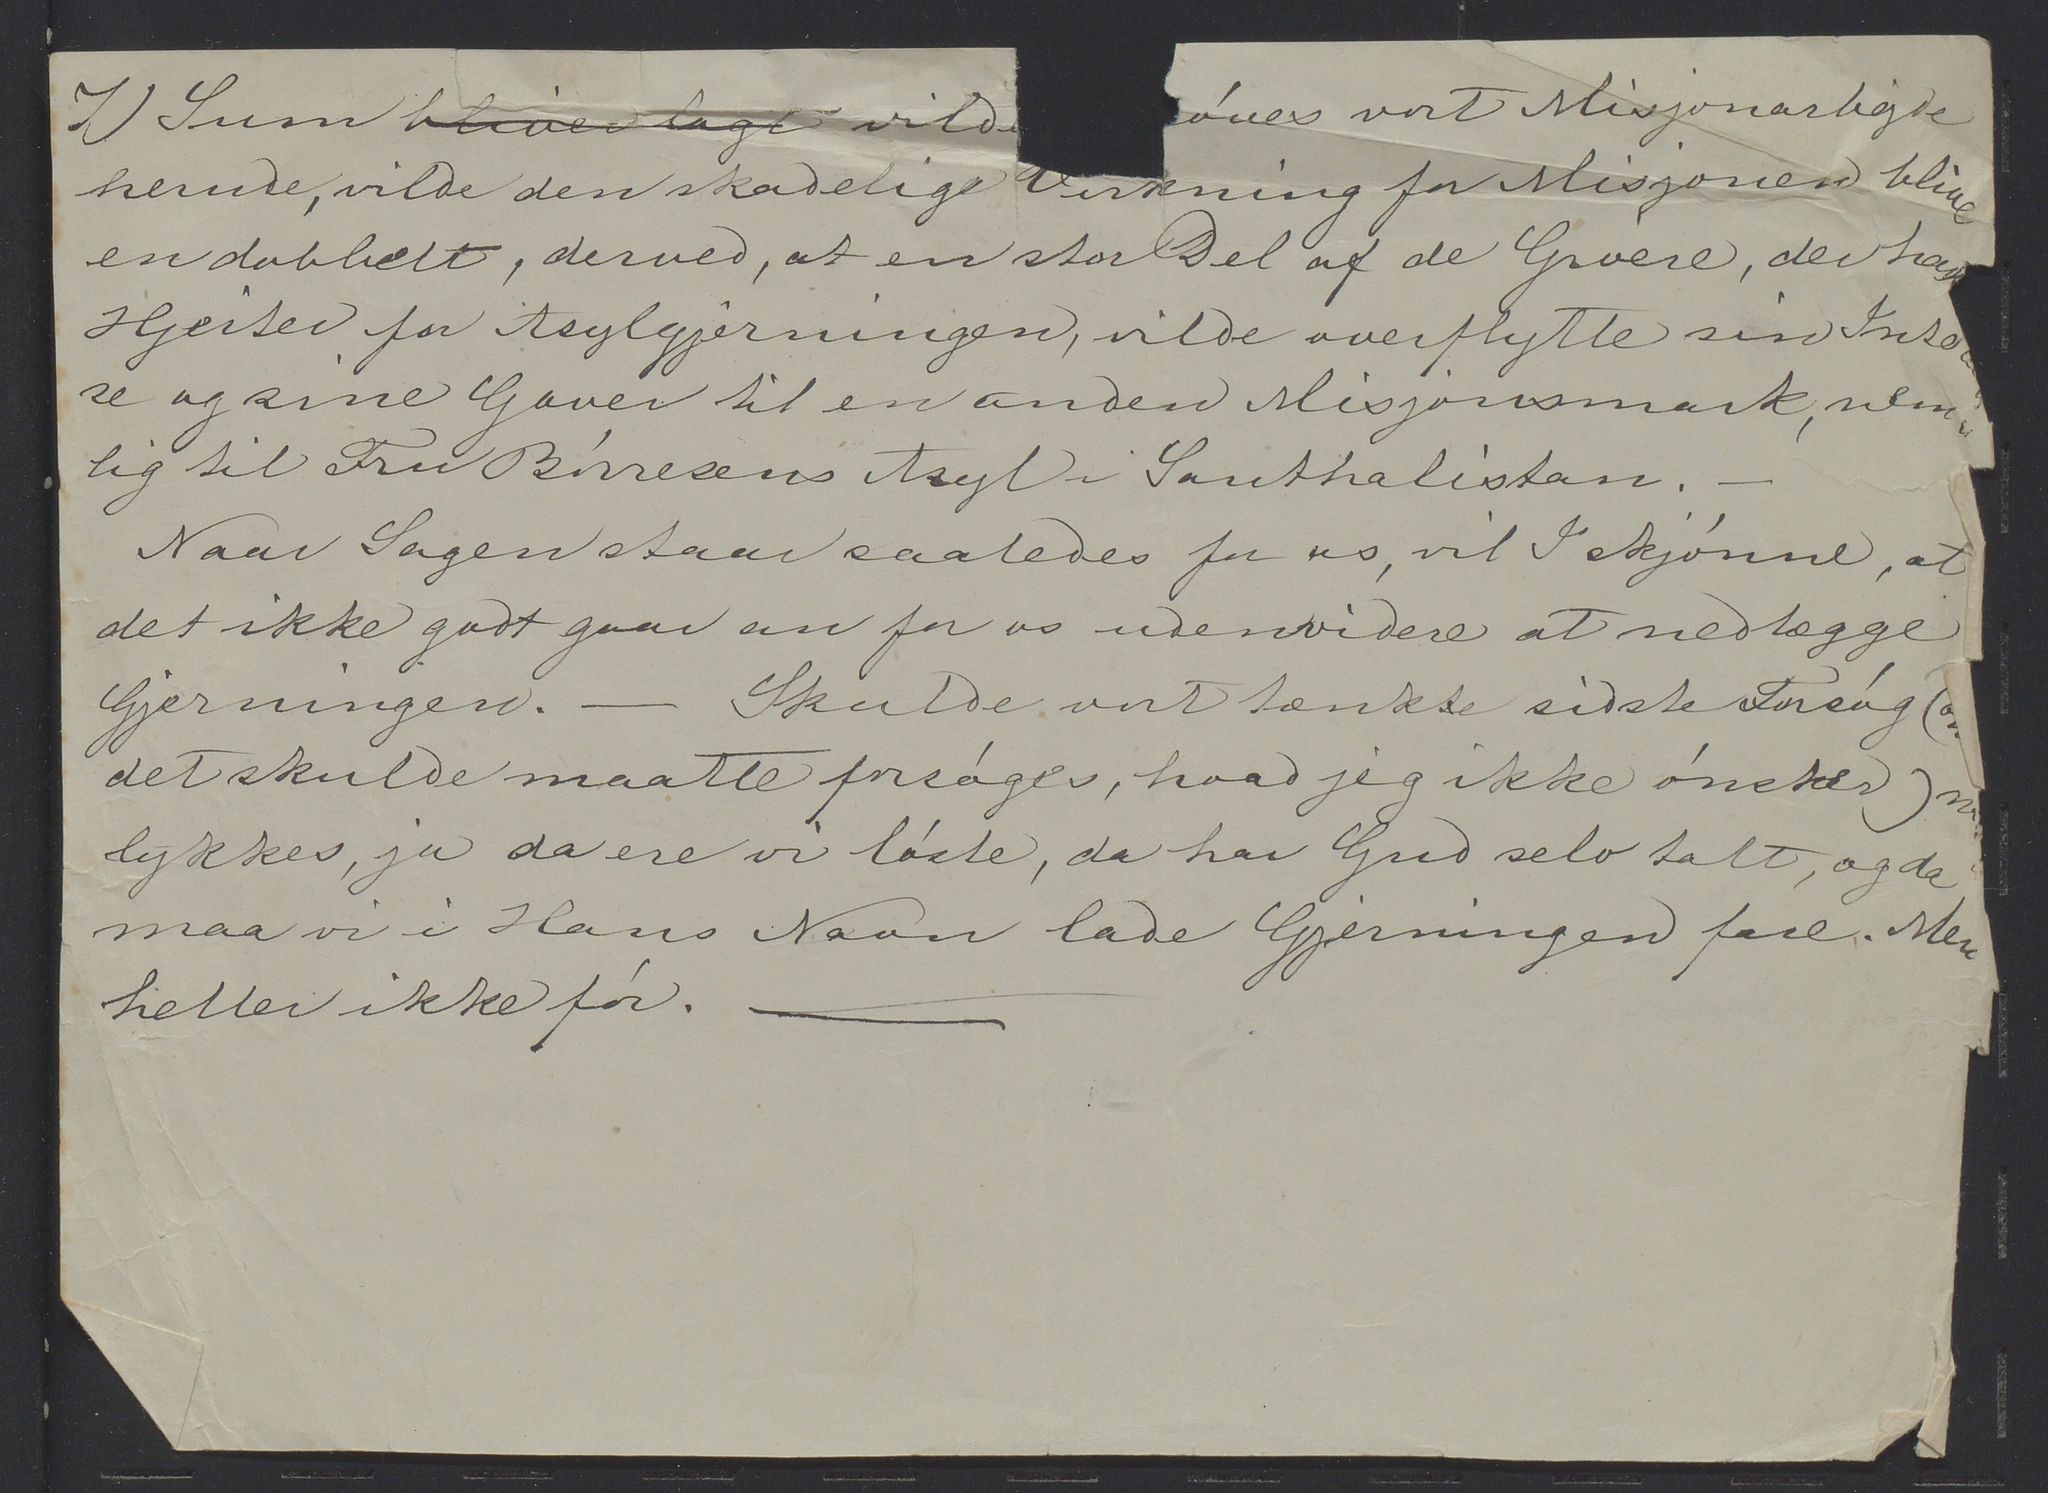 7) Sum bliver lagt vilde óves vort Misjonarbejde
herude, vilde den skadelige Virkning for Misjonen blive
en dobbelt, derved, at en stor Del af de Givere, der har
Hjerter for Asylgjerningen, vilde overflytte sin
se og sine Gaver til en anden Misjonsmark, nem-
lig til Fru Bórresens Asyl i Santhalistan. —
Naar Sagen staar saaledes for os, vil I skjónne, at
det ikke godt gaar an for os udenvidere at nedlægge
Gjerningen. — Skulde vort tænkte sidste Forsóg (om
det skulde maatte forsóges, hvad jeg ikke ónsker)
lykkes, ja da ere vi lóste, da har Gud selv talt, og da
maa vi i Hans Navn lade Gjerningen fare. Men
heller ikke fór. —